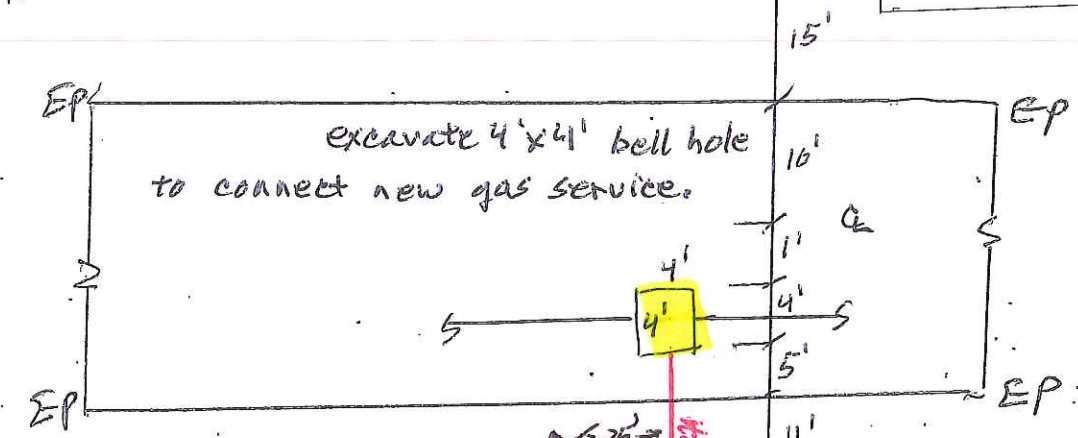 15'
EP
EP
excavate 4'x4' bell hole
10'
to connect new gas service.
℄
1'
4'
4'
4'
5'
EP
EP
11'